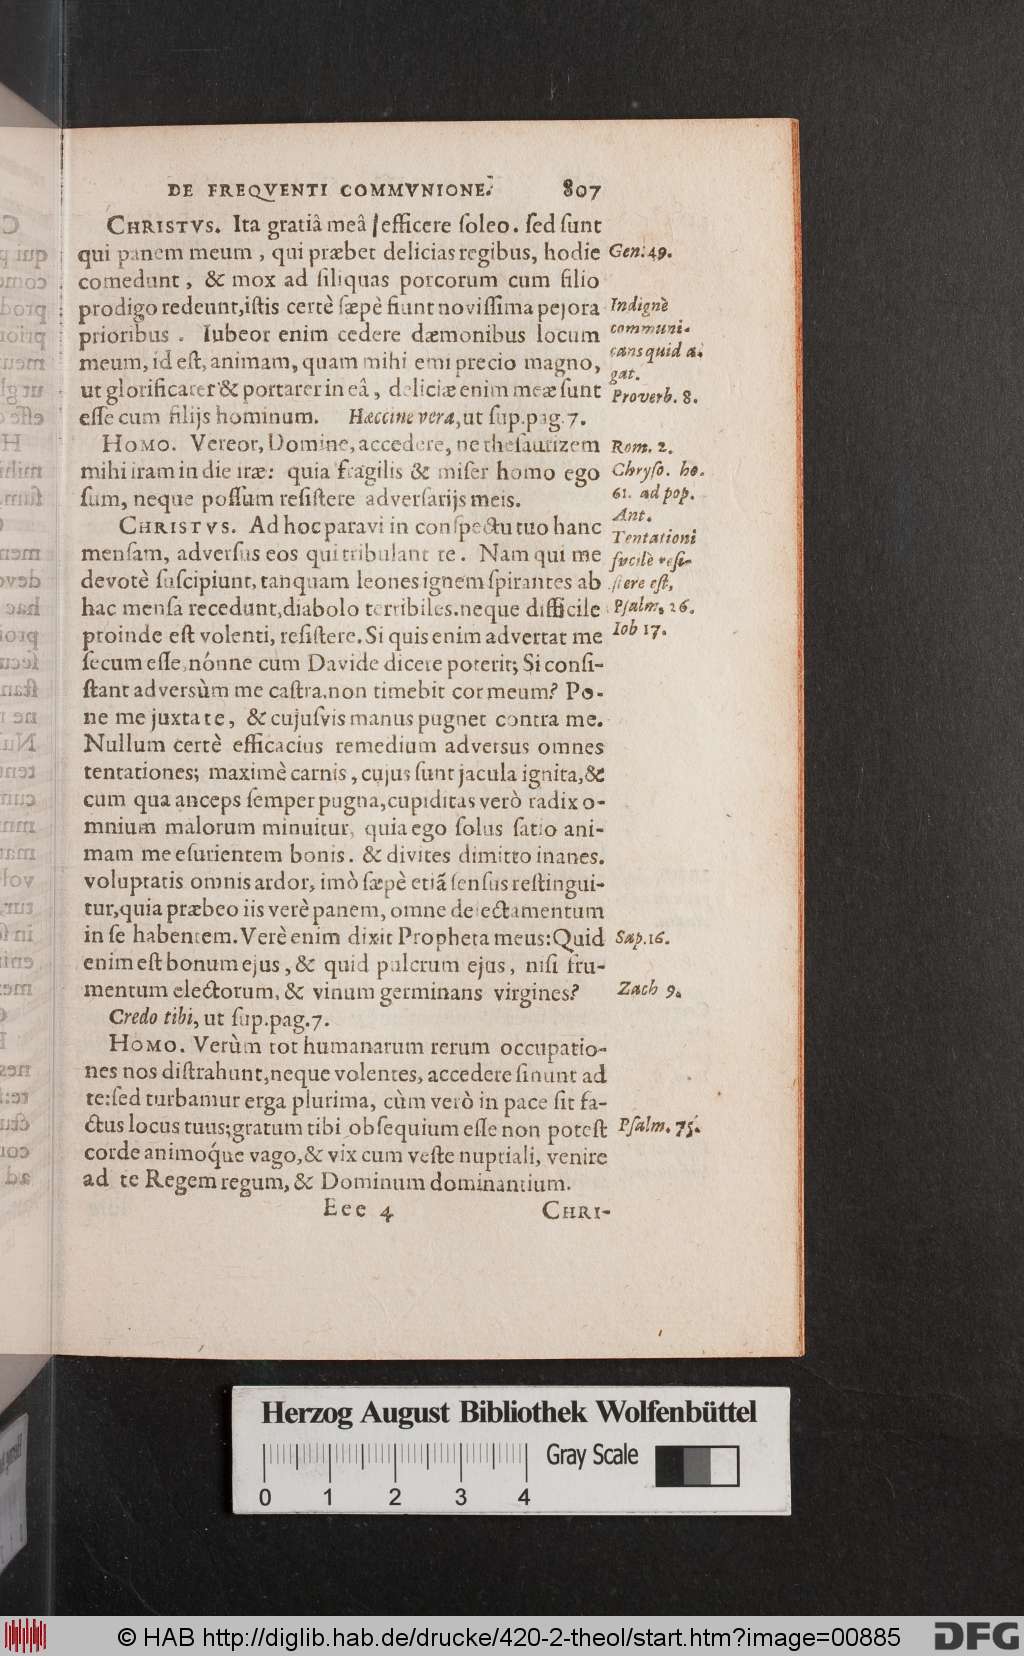 DE FREQVENTI COMMVNIONE. 807
CHRISTVS. Ita gratiâ meâ efficere ſoleo. ſed ſunt
qui panem meum, qui præbet delicias regibus, hodie
comedunt, & mox ad ſiliquas porcorum cum filio
prodigo redeunt, iſtis certè ſæpè fiunt noviſſima pejora
prioribus. Iubeor enim cedere dæmonibus locum
meum, id eſt, animam, quam mihi emi precio magno,
ut glorificarer & portarer in eâ, deliciæ enim meæ ſunt
eſſe cum filijs hominum. Hæccine vera, ut ſup. pag. 7.
HOMO. Vereor, Domine, accedere, ne theſaurizem
mihi iram in die iræ: quia fragilis & miſer homo ego
ſum, neque poſſum reſiſtere adverſarijs meis.
CHRISTVS. Ad hoc paravi in conſpectu tuo hanc
menſam, adverſus eos qui tribulant te. Nam qui me
devotè ſuſcipiunt, tanquam leones ignem ſpirantes ab
hac menſa recedunt, diabolo terribiles. neque difficile
proinde eſt volenti, reſiſtere. Si quis enim advertat me
ſecum eſſe, nónne cum Davide dicere poterit; Si conſi-
ſtant adversùm me caſtra, non timebit cor meum? Po-
ne me juxta te, & cujuſvis manus pugnet contra me.
Nullum certè efficacius remedium adversus omnes
tentationes; maximè carnis, cujus ſunt jacula ignita, &
cum qua anceps ſemper pugna, cupiditas verò radix o-
mnium malorum minuitur, quia ego ſolus ſatio ani-
mam me eſurientem bonis. & divites dimitto inanes.
voluptatis omnis ardor, imò ſæpè etiã ſenſus reſtingui-
tur, quia præbeo iis verè panem, omne delectamentum
in ſe habentem. Verè enim dixit Propheta meus: Quid
enim eſt bonum ejus, & quid pulcrum ejus, niſi fru-
mentum electorum, & vinum germinans virgines?
Credo tibi, ut ſup. pag. 7.
HOMO. Verùm tot humanarum rerum occupatio-
nes nos diſtrahunt, neque volentes, accedere ſinunt ad
te: ſed turbamur erga plurima, cùm verò in pace ſit fa-
ctus locus tuus; gratum tibi obſequium eſſe non poteſt
corde animoq́ue vago, & vix cum veſte nuptiali, venire
ad te Regem regum, & Dominum dominantium.
Eee 4 CHRI-
Gen. 49.
Indignè
communi-
cans quid a-
gat.
Proverb. 8.
Rom. 2.
Chryſo. ho.
61. ad pop.
Ant.
Tentationi
facilè reſi-
ſtere eſt,
Pſalm. 26.
Iob 17.
Sap. 16.
Zach 9.
Pſalm. 75.
Herzog August Bibliothek Wolfenbüttel
Gray Scale
0 1 2 3 4
© HAB http://diglib.hab.de/drucke/420-2-theol/start.htm?image=00885
DFG